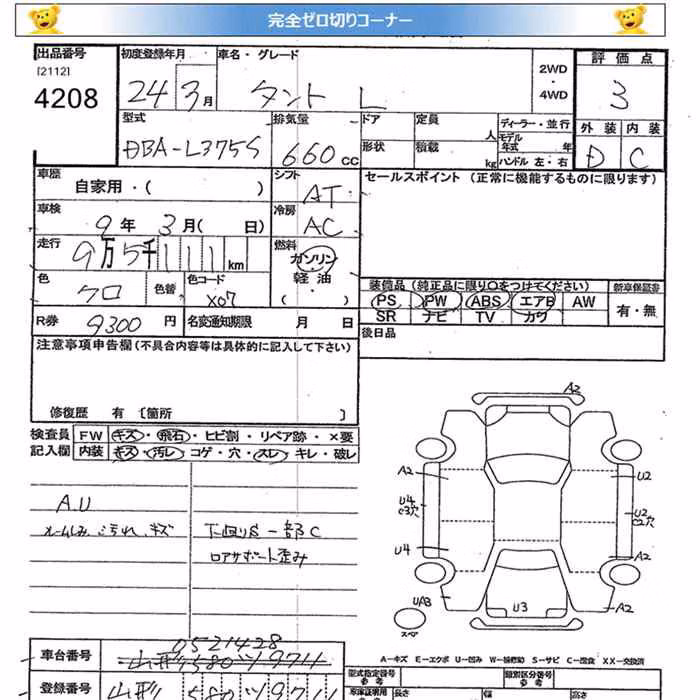 完全ゼロ切りコーナー
出品番号
[2112]
4208
初度登録年月
24 3月
車名・グレード
タント L
2WD
・
4WD
評価点
3
外装 内装
D C
型式
DBA-L375S
排気量
660cc
ドア
定員
人
形状
積載
kg
ディーラー・並行
モデル
年式 年
ハンドル 左・右
車歴
自家用・( )
シフト
AT
セールスポイント (正常に機能するものに限ります)
車検
9年 3月( 日)
冷房
AC
走行
9万5千111km
燃料
ガソリン
軽油
・
( )
色
クロ
色替
色コード
X07
装備品(純正品に限り○をつけてください)
新車保証書
PS PW ABS エアB AW
有・無
SR ナビ TV カワ
R券 9300円
名変通知期限 月 日
後日品
注意事項申告欄(不具合内容等は具体的に記入して下さい)
修復歴 有 〔箇所 〕
検査員 FW キズ・飛石・ヒビ割・リペア跡・×要
記入欄 内装 キズ・汚レ・コゲ・穴・スレ・キレ・破レ
A.U
ルームしみ、汚れ、キズ
下回りS 一部C
ロアサポート歪み
A2
A2
U2
U4
C3穴
U2
C2穴
U4
A2
UA3
U3
A2
スペア
A-キズ E-エクボ U-凹み W-補修跡 S-サビ C-腐食 XX-交換済
車台番号
0521428
山形580ツ9711
登録番号
山形580ツ9711
型式指定番号
参考
類別区分番号
参考
車庫証明用
長さ
幅
高さ